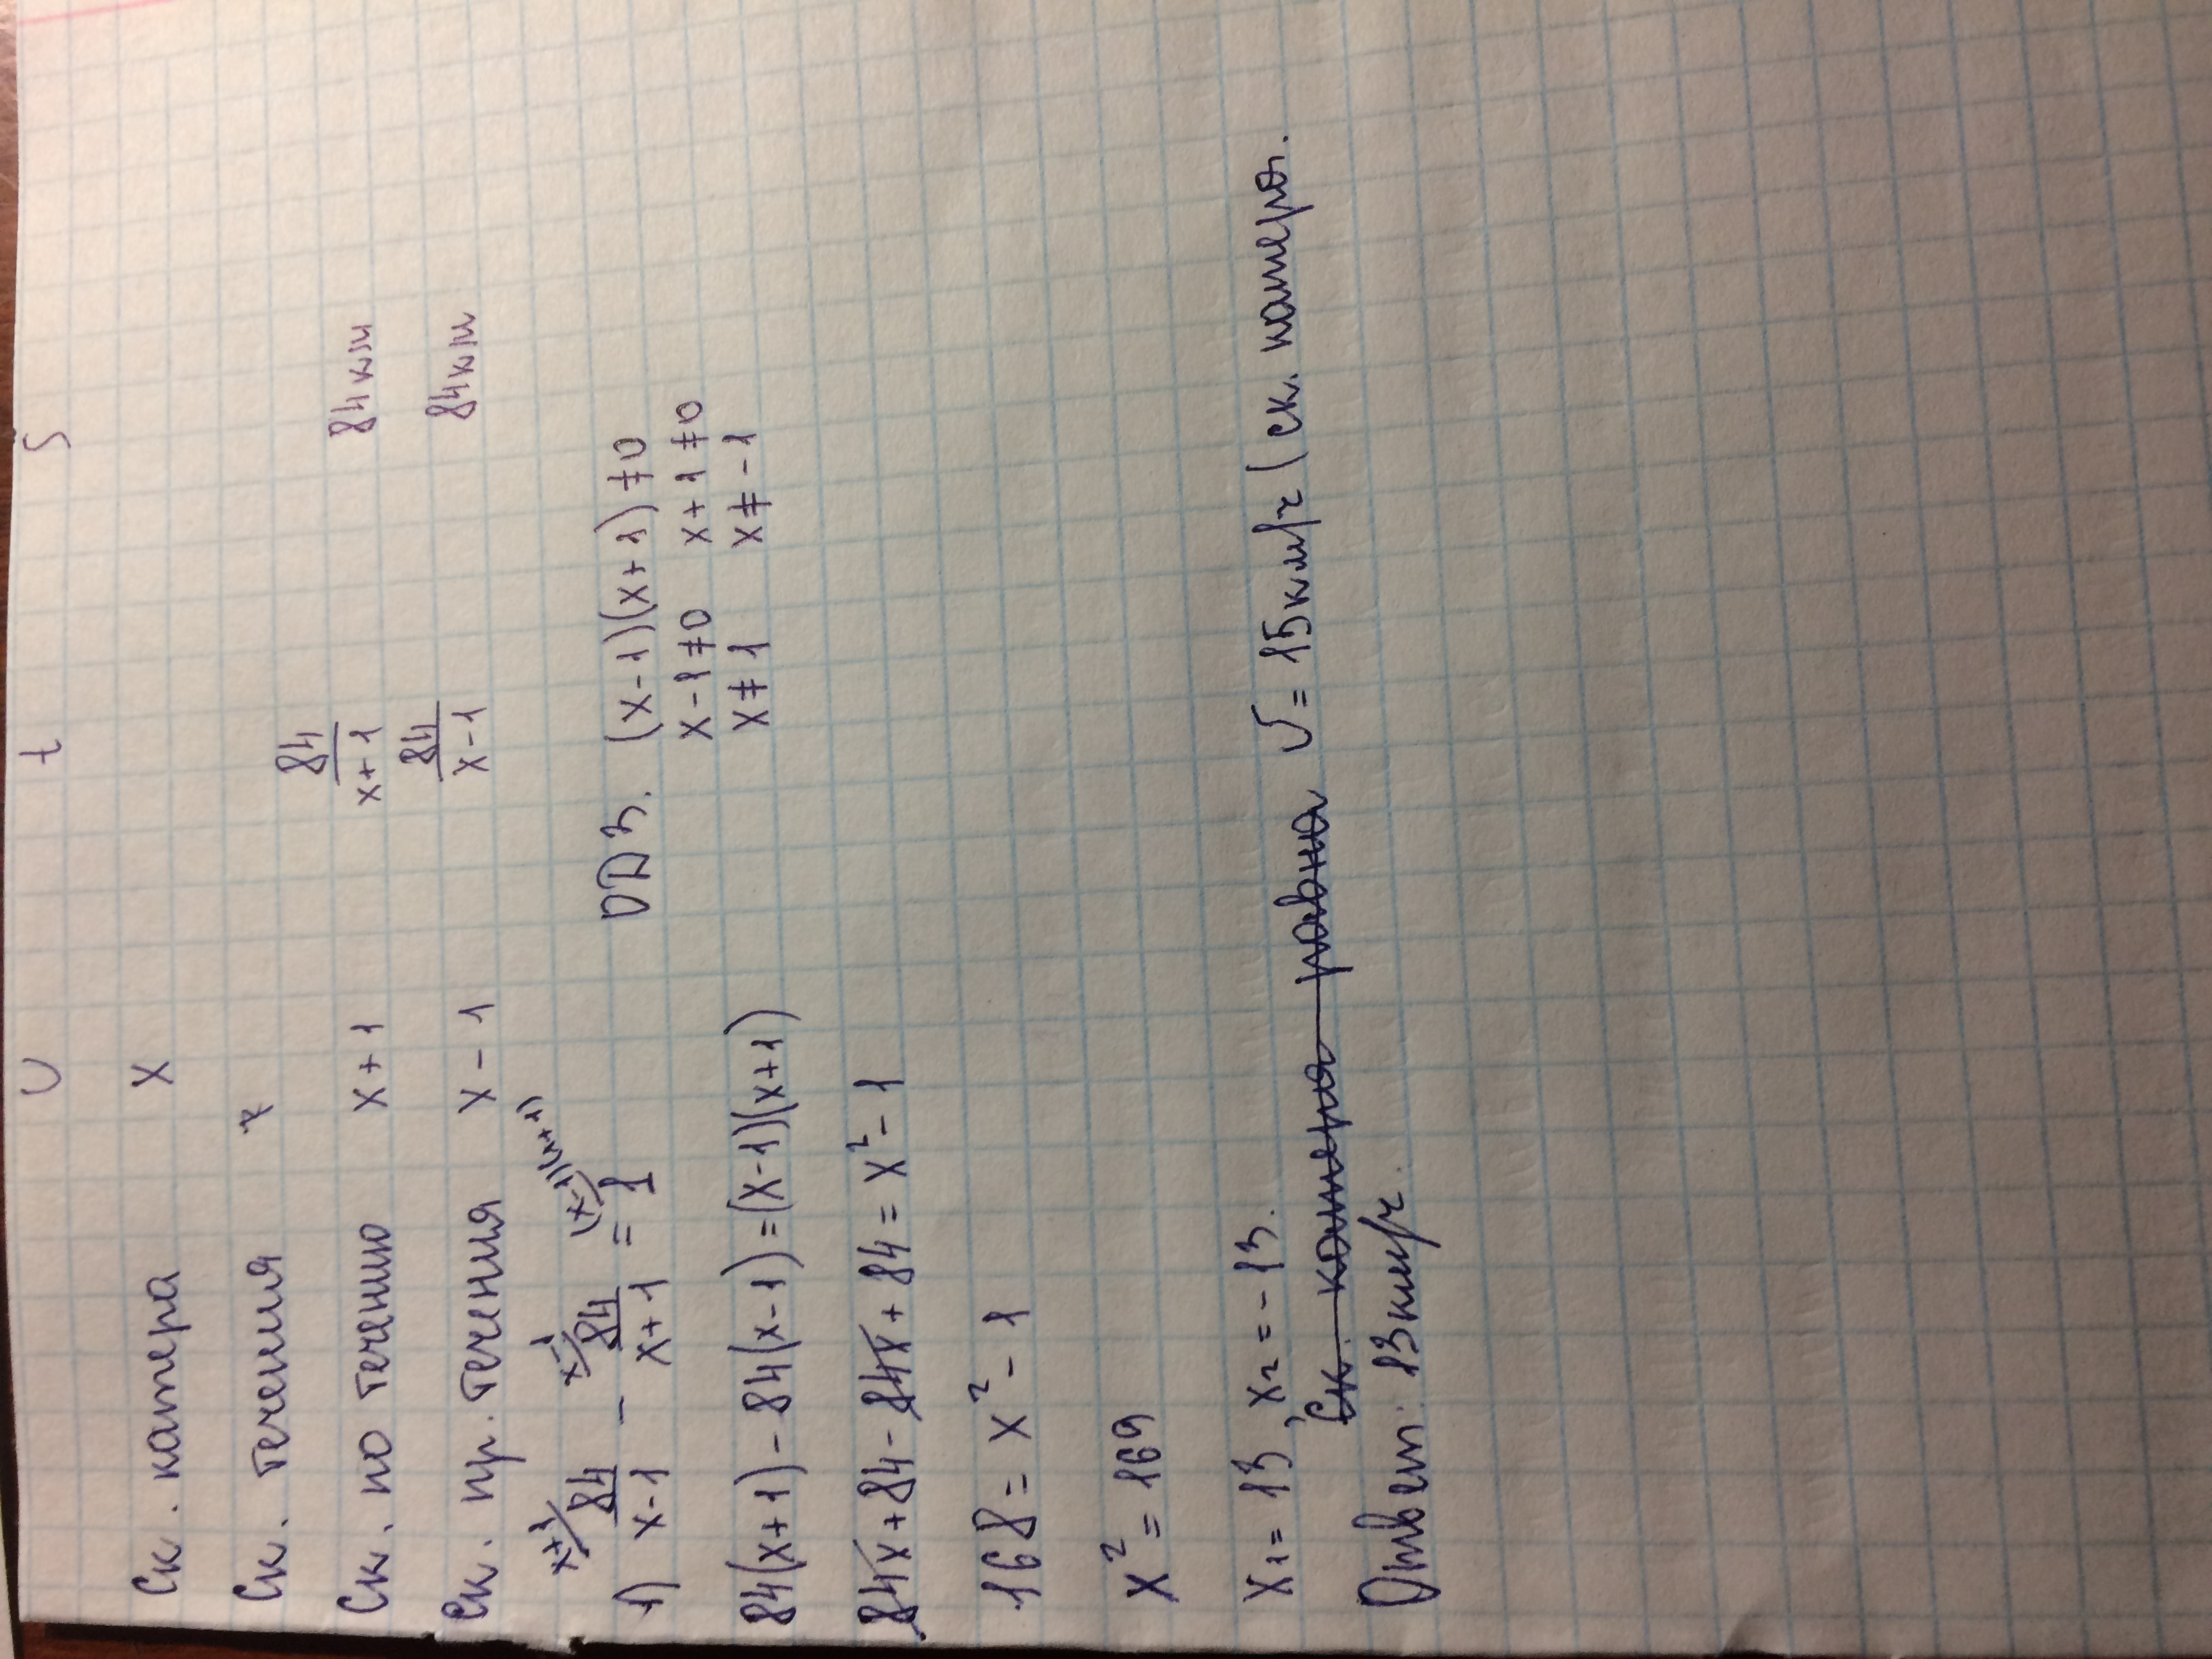 υ t S
Ск. катера x
Ск. течения 1
Ск. по течению x+1 84/(x+1) 84км
Ск. пр. течения x-1 84/(x-1) 84км
1) 84/(x-1) - 84/(x+1) = 1 ОДЗ. (x-1)(x+1)≠0
x-1≠0 x+1≠0
x≠1 x≠-1
84(x+1)-84(x-1)=(x-1)(x+1)
84x+84-84x+84=x²-1
168=x²-1
x²=169
x₁=13, x₂=-13.
Ск. катера равна υ=15км/ч (ск. катера.
Ответ: 13км/ч.